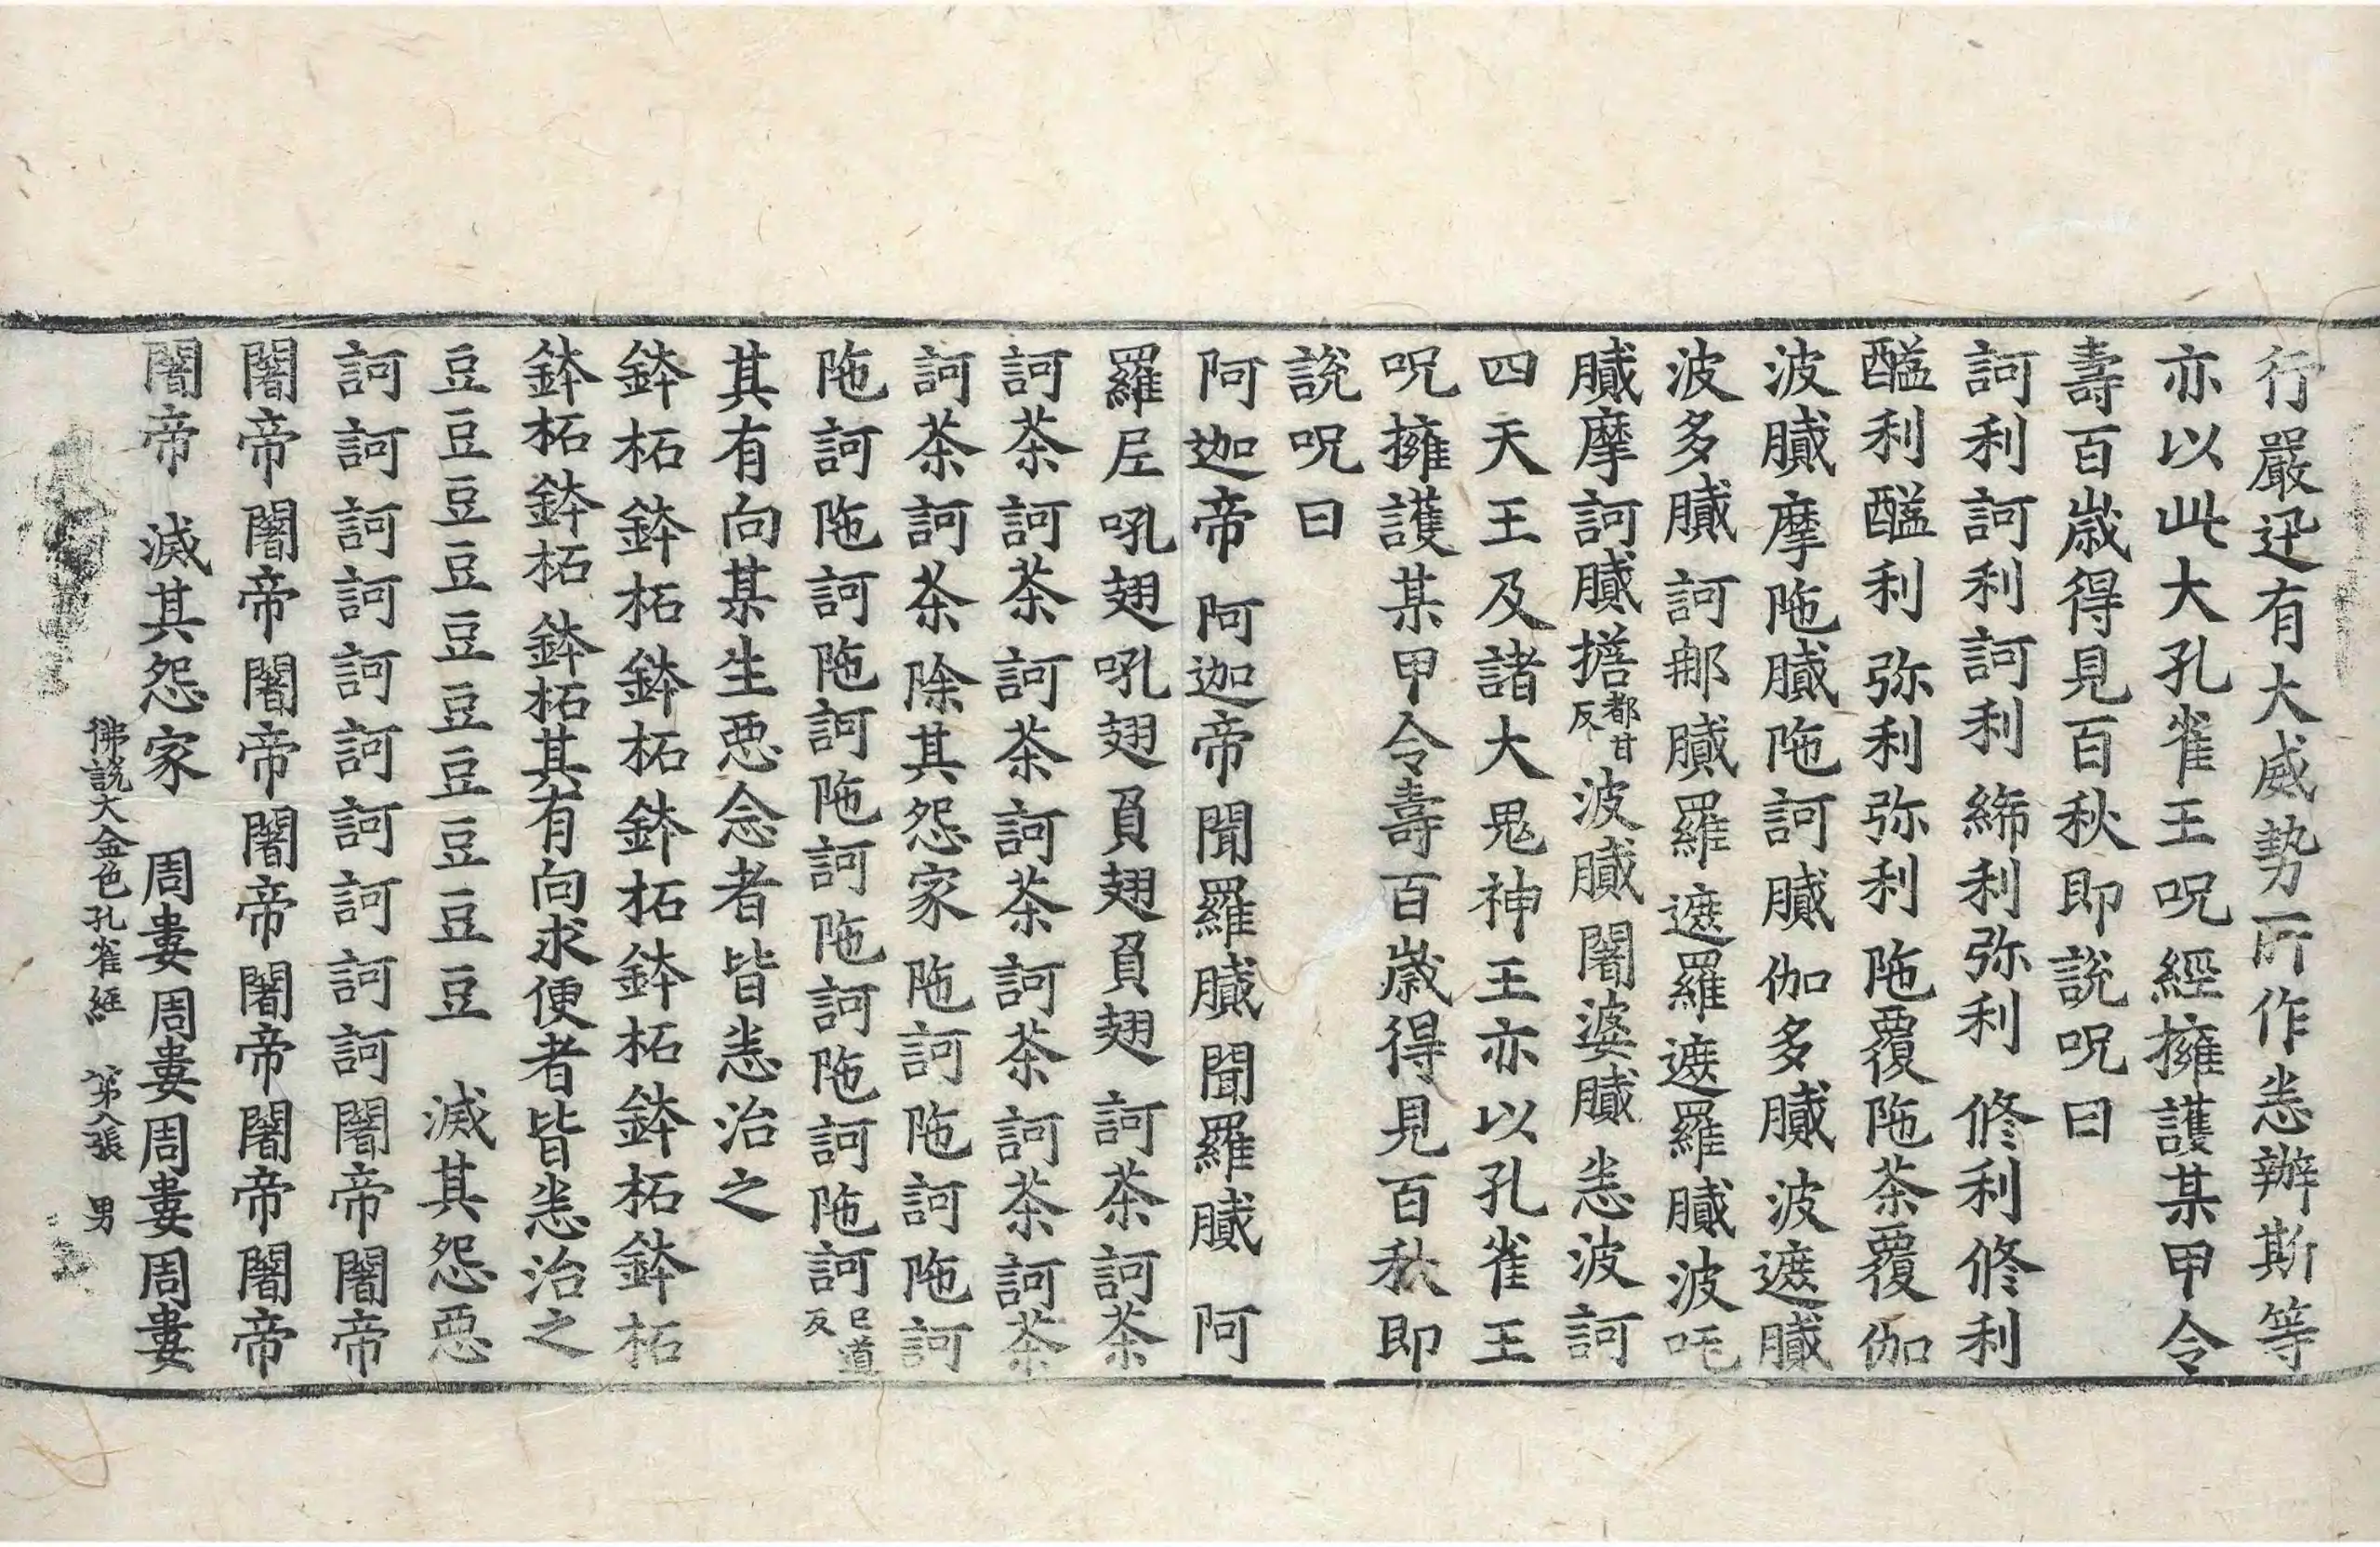 行嚴迅有大威勢所作恙辦斯等
亦以此大孔雀王呪經擁護某甲令
壽百歲得見百秋即說呪曰
訶利訶利訶利 締利弥利 修利修利
醯利醯利 弥利弥利 陁覆陁茶覆伽
波膱摩陁膱陁訶膱伽多膱波遮膱
波多膱訶那膱羅遮羅遮羅膱波吒
膱摩訶膱擔都甘反波膱闍婆膱恙波訶
四天王及諸大鬼神王亦以孔雀王
呪擁護某甲令壽百歲得見百秋即
說呪曰
阿迦帝 阿迦帝聞羅膱 聞羅膱 阿
羅𡰱吼翅吼翅負翅負翅 訶茶訶茶
訶茶訶茶訶茶訶茶訶茶訶茶訶茶
訶茶訶茶除其怨家陁訶陁訶陁訶
陁訶陁訶陁訶陁訶陁訶陁訶陁訶巳道反
其有向某生惡念者皆恙治之
鉢柘鉢柘鉢柘鉢柘鉢柘鉢柘鉢柘
鉢柘鉢柘鉢柘其有向求便者皆恙治之
豆豆豆豆豆豆豆豆豆豆 滅其怨惡
訶訶訶訶訶訶訶訶訶訶闍帝闍帝
闍帝闍帝闍帝闍帝闍帝闍帝闍帝
闍帝 滅其怨家 周婁周婁周婁周婁
佛說大金色孔雀經 第八張 男